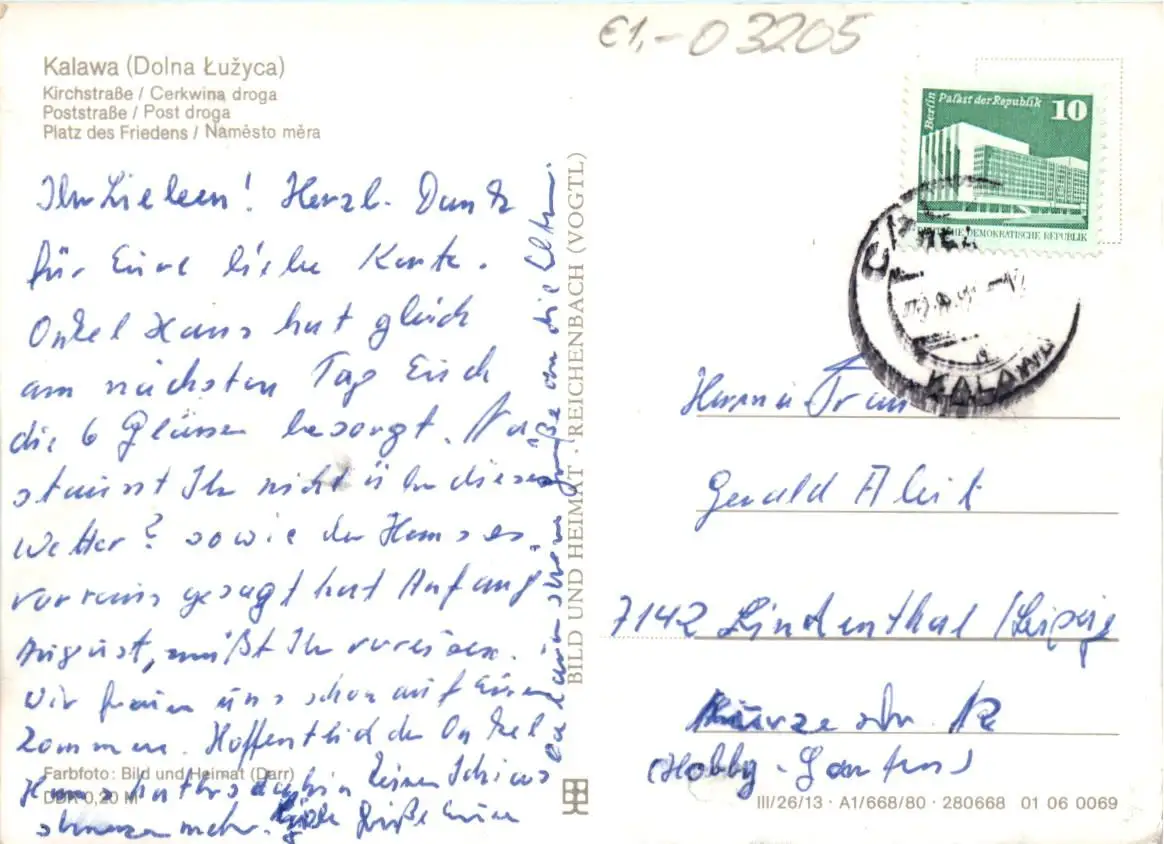 €1,- 03205
Kalawa (Dolna Łužyca)
Kirchstraße / Cerkwina droga
Poststraße / Post droga
Platz des Friedens / Naměsto měra
Ihr Lieben! Herzl. Dank
für Eure liebe Karte.
Onkel Hans hat gleich
am nächsten Tag Euch
die 6 Gläser besorgt. Na
staunst Ihr nicht über dieses
Wetter? sowie der Hans es
voraus gesagt hat Anfang
August, müßt Ihr verreisen.
Wir freuen uns schon auf Euer
kommen. Hoffentlich der Onkel
Hans hat bis dahin keinen Ischias
schmerzen mehr. Grüße Eure
Grüße an die Eltern.
Farbfoto: Bild und Heimat (Darr)
DDR 0,20 M
BILD UND HEIMAT · REICHENBACH (VOGTL)
Berlin Palast der Republik 10
DEUTSCHE DEMOKRATISCHE REPUBLIK
KALAWA
Herrn u Frau
Gerald
7142 Lindenthal /Leipzig
str. 12
(Hobby-Gartens)
III/26/13 · A1/668/80 · 280668 01 06 0069